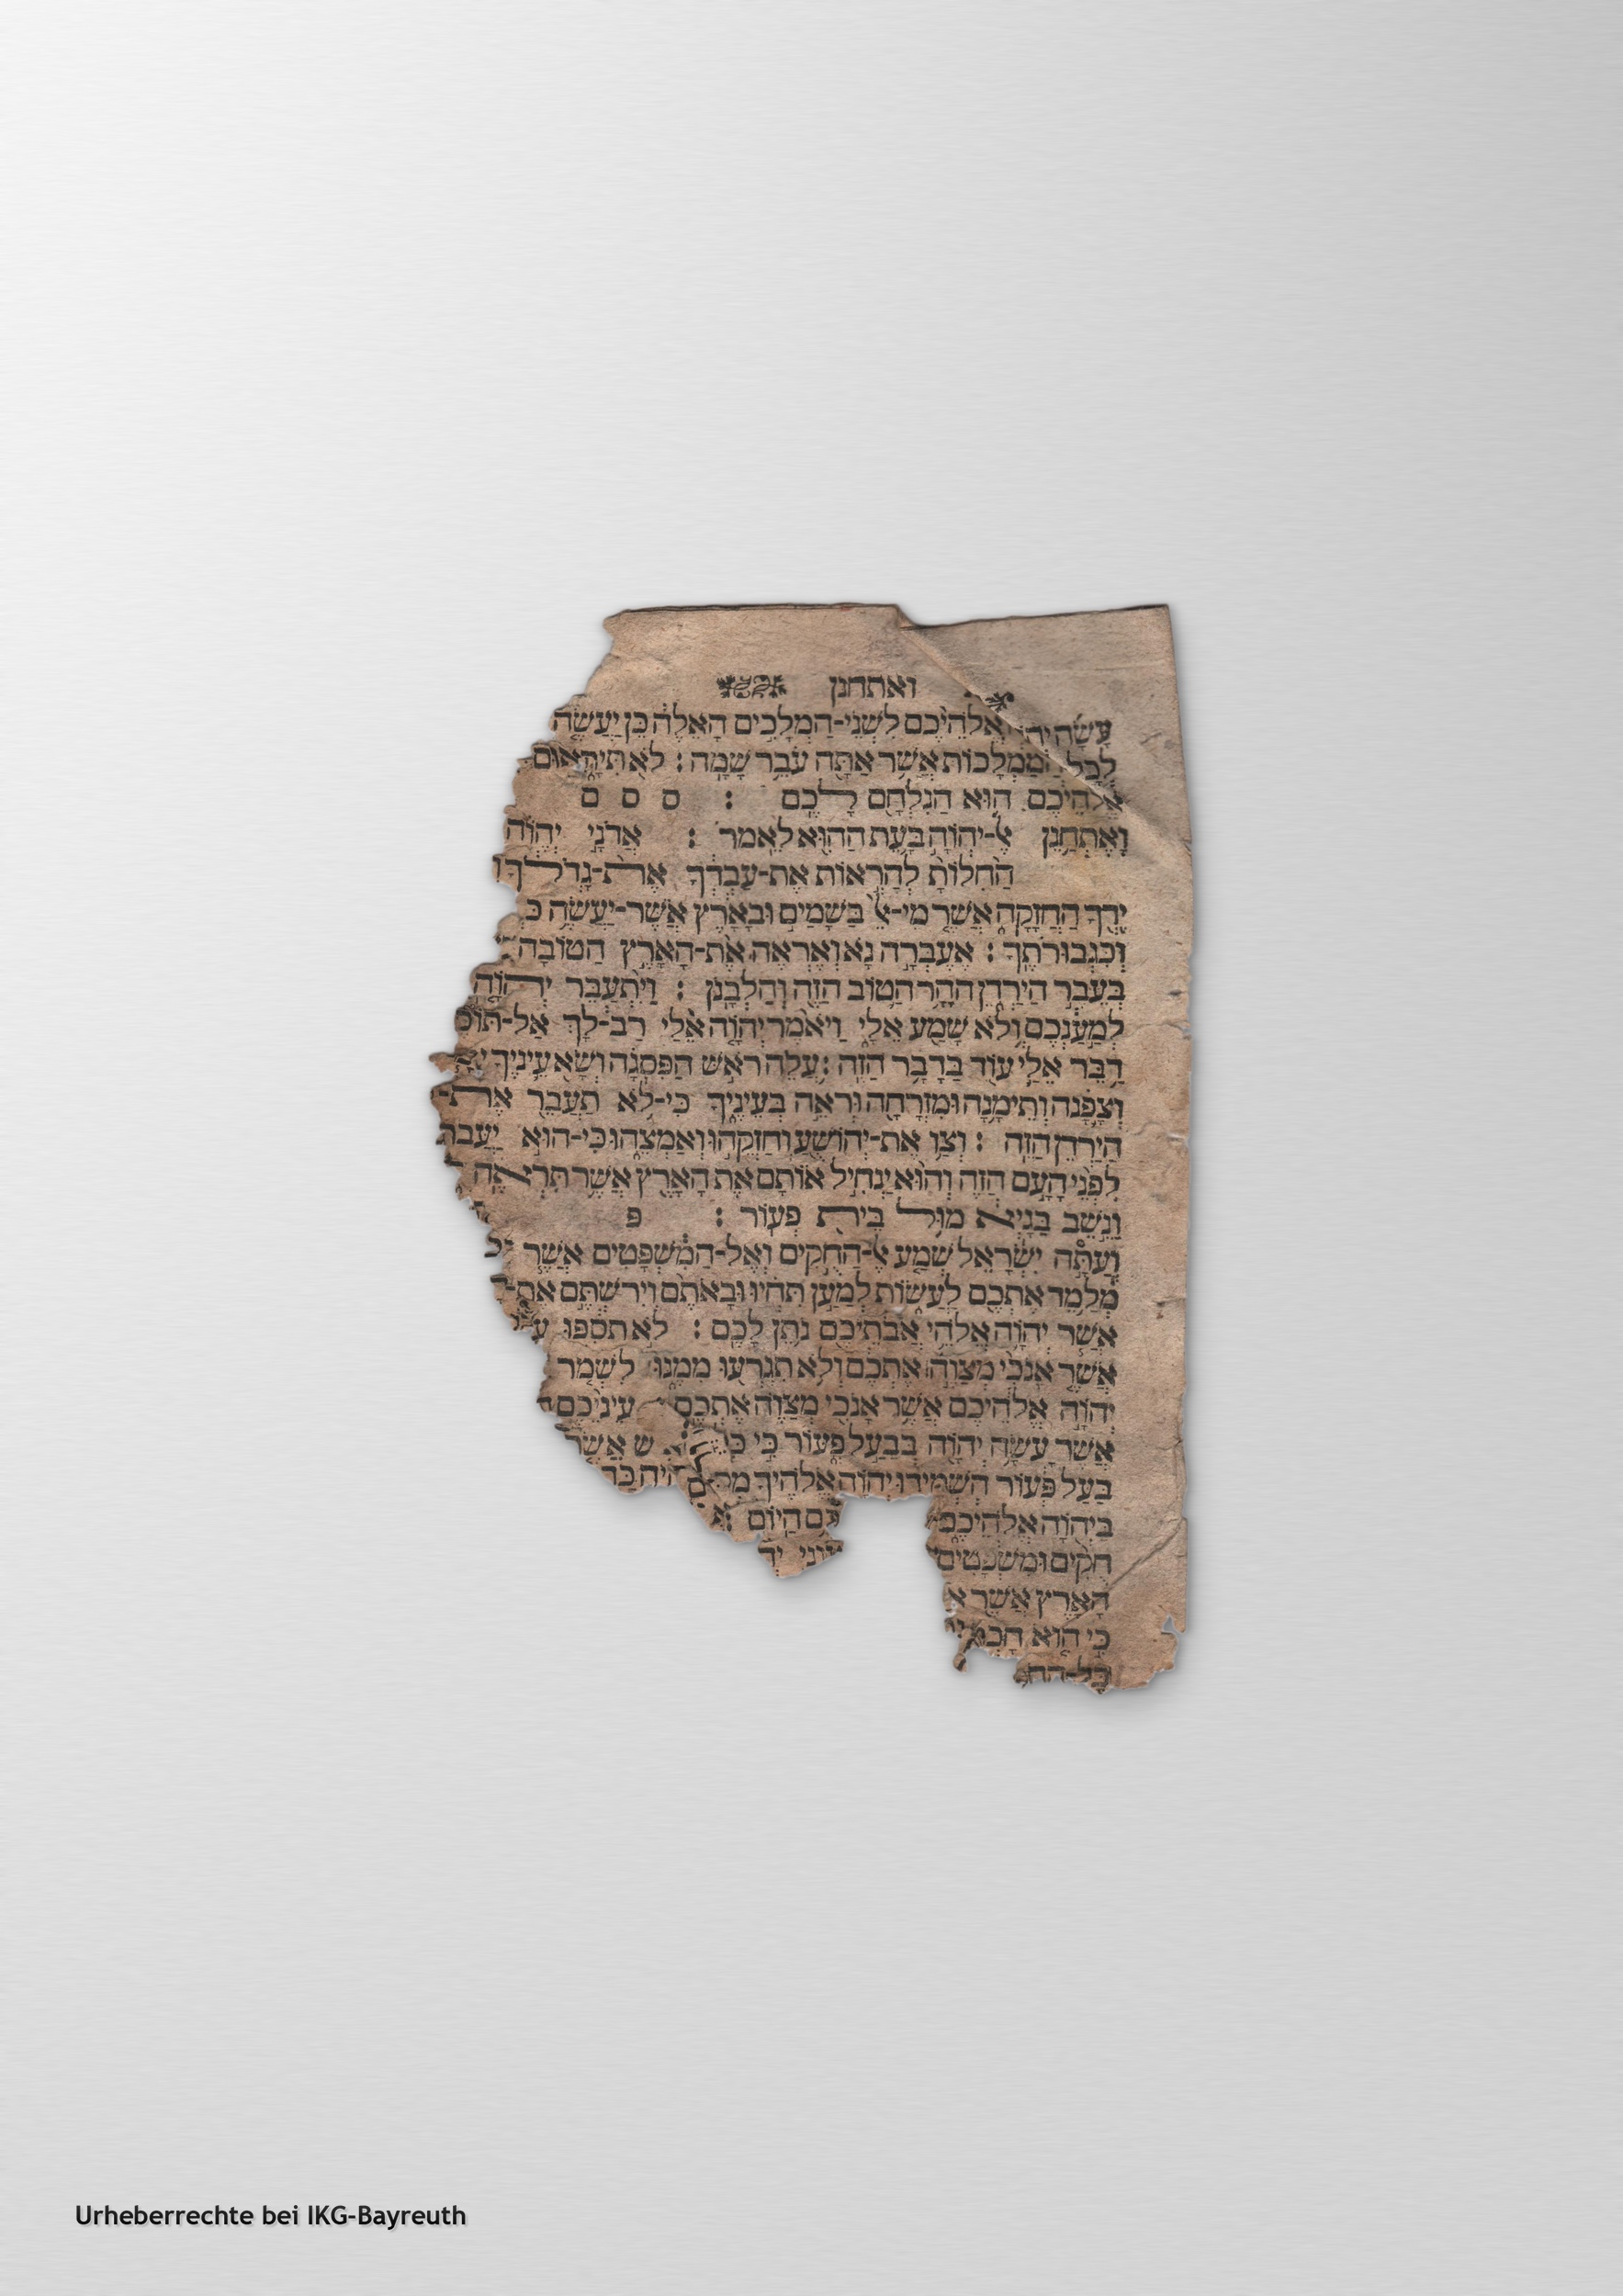 ואתחנן
עָשָׂה אֱלֹהֵיכֶם לִשְׁנֵי-הַמְּלָכִים הָאֵלֶּה כֵּן יַעֲשֶׂה
לְכָל הַמַּמְלָכוֹת אֲשֶׁר אַתָּה עֹבֵר שָׁמָּה : לֹא תִּירָאוּם
אֱלֹהֵיכֶם הוּא הַנִּלְחָם לָכֶם : ס ס ס
וָאֶתְחַנַּן אֶל-יְהוָֹה בָּעֵת הַהִוא לֵאמֹר : אֲדֹנָי יְהֹוִה
הַחִלּוֹתָ לְהַרְאוֹת אֶת-עַבְדְּךָ אֶת-גָּדְלְךָ
יָדְךָ הַחֲזָקָה אֲשֶׁר מִי-אֵל בַּשָּׁמַיִם וּבָאָרֶץ אֲשֶׁר-יַעֲשֶׂה
וְכִגְבוּרֹתֶךָ : אֶעְבְּרָה נָּא וְאֶרְאֶה אֶת-הָאָרֶץ הַטּוֹבָה
בְּעֵבֶר הַיַּרְדֵּן הָהָר הַטּוֹב הַזֶּה וְהַלְּבָנֹן : וַיִּתְעַבֵּר יְהוָֹה
לְמַעַנְכֶם וְלֹא שָׁמַע אֵלָי וַיֹּאמֶר יְהוָֹה אֵלַי רַב-לָךְ אַל-תּוֹסֶ
דַּבֵּר אֵלַי עוֹד בַּדָּבָר הַזֶּה : עֲלֵה רֹאשׁ הַפִּסְגָּה וְשָׂא עֵינֶיךָ
וְצָפֹנָה וְתֵימָנָה וּמִזְרָחָה וּרְאֵה בְעֵינֶיךָ כִּי-לֹא תַעֲבֹר אֶת-
הַיַּרְדֵּן הַזֶּה : וְצַו אֶת-יְהוֹשֻׁעַ וְחַזְּקֵהוּ וְאַמְּצֵהוּ כִּי-הוּא יַעֲבֹר
לִפְנֵי הָעָם הַזֶּה וְהוּא יַנְחִיל אוֹתָם אֶת הָאָרֶץ אֲשֶׁר תִּרְאֶה
וַנֵּשֶׁב בַּגָּיְא מוּל בֵּית פְּעוֹר : פ
וְעַתָּה יִשְׂרָאֵל שְׁמַע אֶל-הַחֻקִּים וְאֶל-הַמִּשְׁפָּטִים אֲשֶׁר
מְלַמֵּד אֶתְכֶם לַעֲשׂוֹת לְמַעַן תִּחְיוּ וּבָאתֶם וִירִשְׁתֶּם אֶת-
אֲשֶׁר יְהוָֹה אֱלֹהֵי אֲבֹתֵיכֶם נֹתֵן לָכֶם : לֹא תֹסִפוּ
אֲשֶׁר אָנֹכִי מְצַוֶּה אֶתְכֶם וְלֹא תִגְרְעוּ מִמֶּנּוּ לִשְׁמֹר
יְהוָֹה אֱלֹהֵיכֶם אֲשֶׁר אָנֹכִי מְצַוֶּה אֶתְכֶם עֵינֵיכֶם
אֲשֶׁר עָשָׂה יְהוָֹה בְּבַעַל פְּעוֹר כִּי אֲשֶׁר
בַעַל פְּעוֹר הִשְׁמִידוֹ יְהוָֹה אֱלֹהֶיךָ
בַּיהוָֹה אֱלֹהֵיכֶם הַיּוֹם
חֻקִּים וּמִשְׁפָּטִים
הָאָרֶץ אֲשֶׁר
כִּי הִוא
Urheberrechte bei IKG-Bayreuth